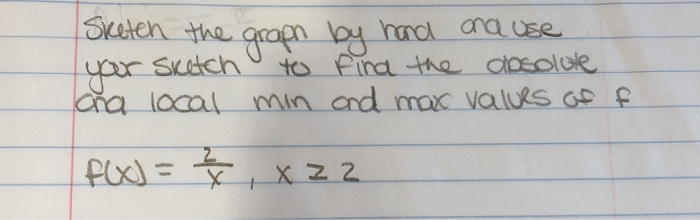 Sketch the graph by hand and use
your sketch to find the absolute
and local min and max values of f
f(x) = 2/x , x ≥ 2